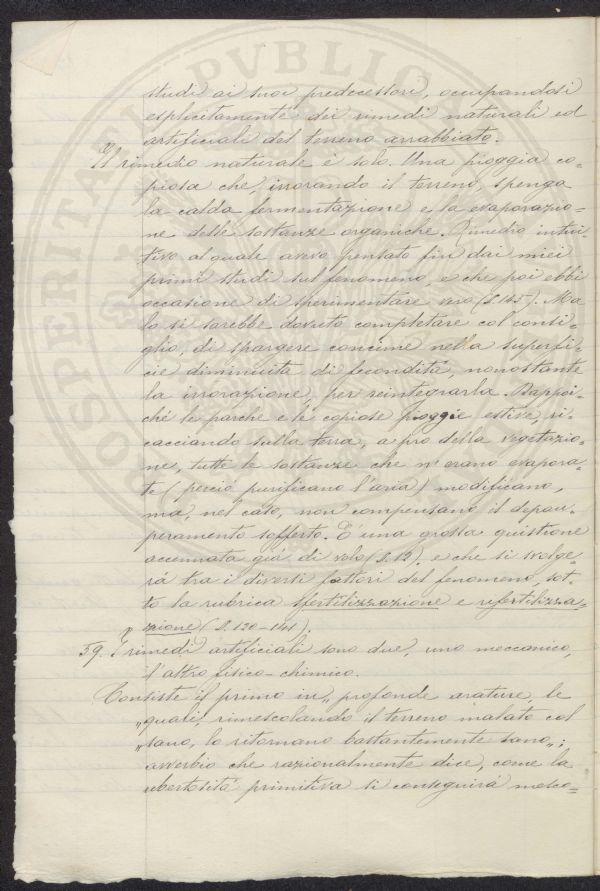 PROSPERITATI PVBLICAE
studi ai suoi predecessori, occupandosi
esplicitamente dei rimedi naturali ed
artificiali del terreno arrabbiato.
Il rimedio naturale è solo. Una pioggia co=
piosa che, irrorando il terreno, spenga
la calda fermentazione e la evaporazio=
ne delle sostanze organiche. Rimedio intui=
tivo al quale avevo pensato fin dai miei
primi studi sul fenomeno, e che poi ebbi
occasione di sperimentare vero (§. 145). Ma
lo si sarebbe dovuto completare col consi=
glio, di spargere concime nella superfi=
cie diminuita di fecondità, nonostante
la irrorazione, per reintegrarla. Dappoi=
ché le parche e le copiose pioggie estive, ri=
cacciando sulla terra, a pro della vegetazio=
ne, tutte le sostanze che n'erano evapora=
te (perciò purificano l'aria) modificano,
ma, nel caso, non compensano il depau=
peramento sofferto. È una grossa quistione
accennata già di volo (§. 12), e che si svolge=
rà tra i diversi fattori del fenomeno, sot=
to la rubrica sfertilizzazione e rifertilizza=
zione (§. 120-141).
59. I rimedi artificiali sono due, uno meccanico,
l'altro fisico-chimico.
Consiste il primo in „ profonde arature, le
„ quali, rimescolando il terreno malato col
„ sano, lo ritornano bastantemente sano „ ;
avverbio che razionalmente dice, come la
ubertosità primitiva si conseguirà mesco=